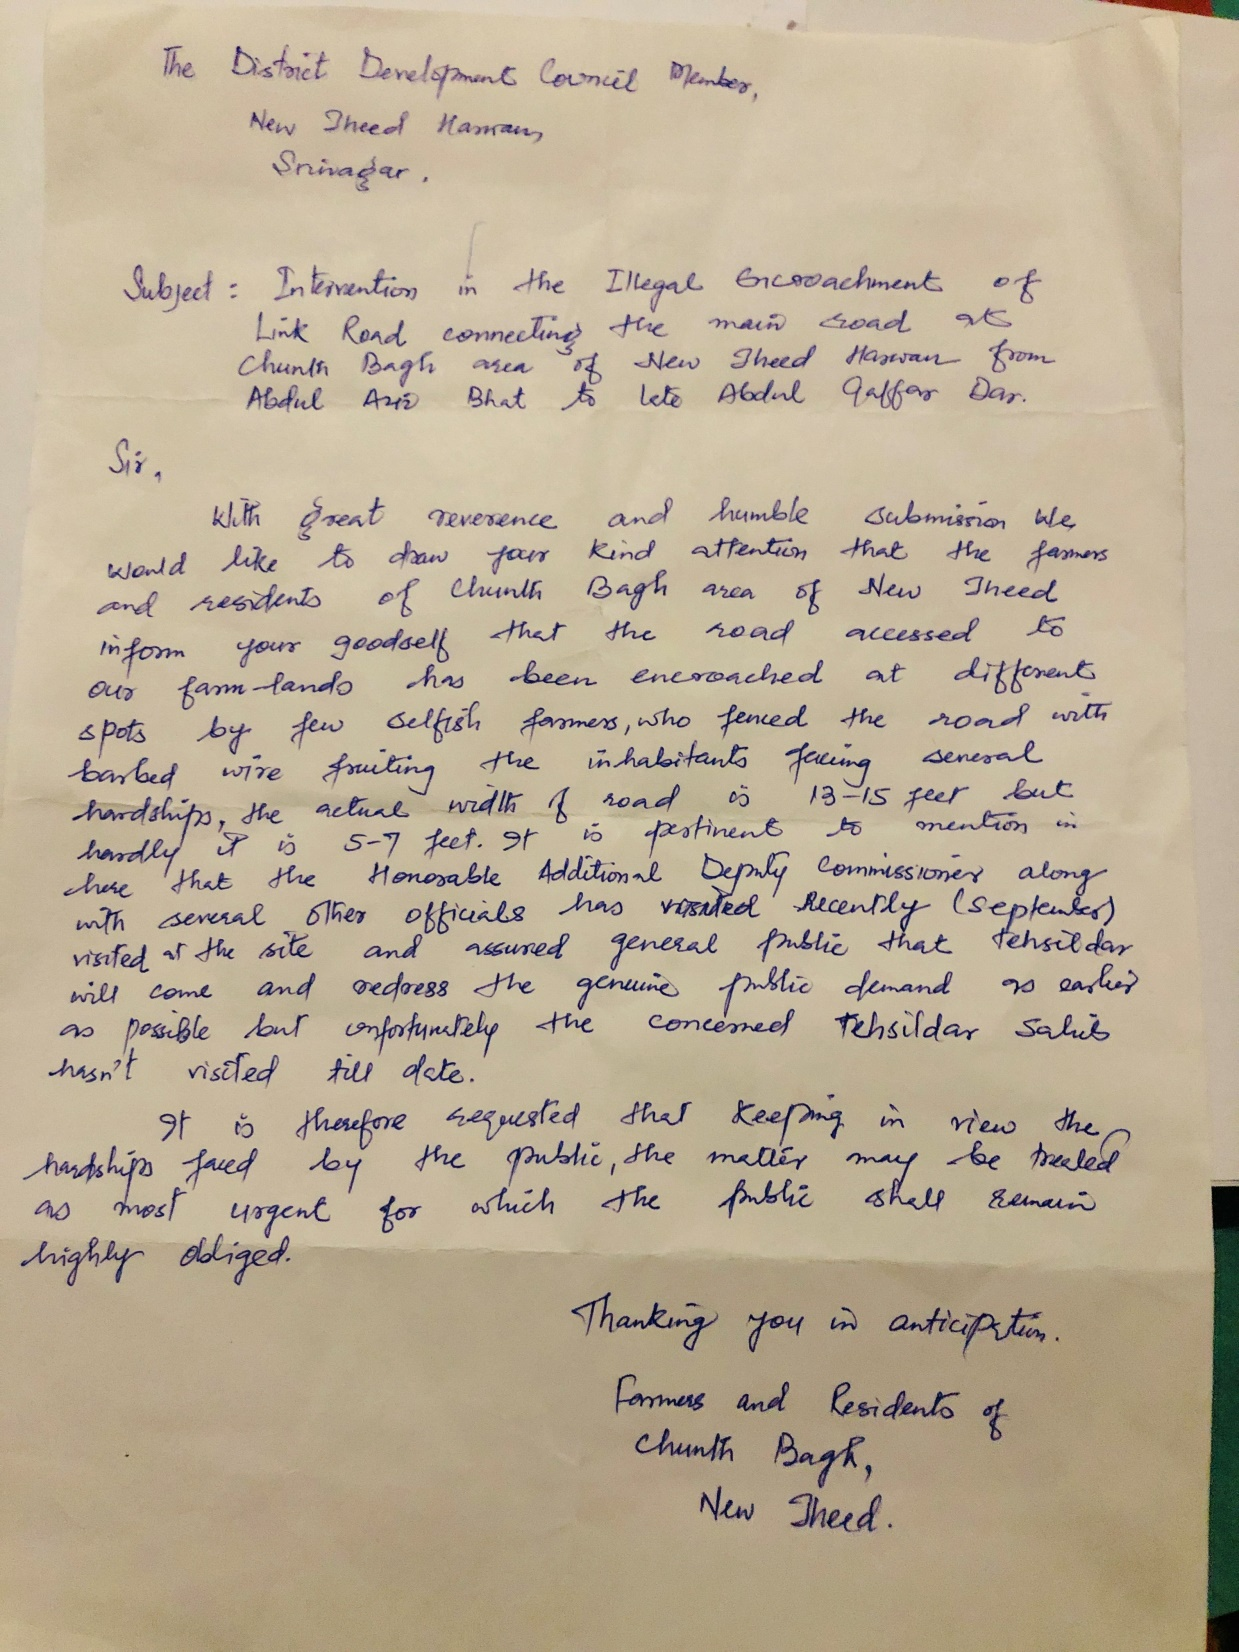 The District Development Council Member,
New Theed Harwan,
Srinagar.
Subject: Intervention in the Illegal Encroachment of
Link Road connecting the main road at
Chunth Bagh area of New Theed Harwan from
Abdul Aziz Bhat to late Abdul Gaffar Dar.
Sir,
With great reverence and humble submission We
would like to draw your kind attention that the farmers
and residents of Chunth Bagh area of New Theed
inform your goodself that the road accessed to
our farm-lands has been encroached at different
spots by few selfish farmers, who fenced the road with
barbed wire fruiting the inhabitants facing several
hardships, the actual width of road is 13-15 feet but
hardly it is 5-7 feet. It is pertinent to mention in
here that the Honorable Additional Deputy Commissioner along
with several other officials has visited Recently (September)
visited at the site and assured general public that Tehsildar
will come and redress the genuine public demand as earlier
as possible but unfortunately the concerned Tehsildar Sahib
hasn't visited till date.
It is therefore requested that Keeping in view the
hardships faced by the public, the matter may be treated
as most urgent for which the public shall remain
highly obliged.
Thanking you in anticipation.
Farmers and Residents of
Chunth Bagh,
New Theed.